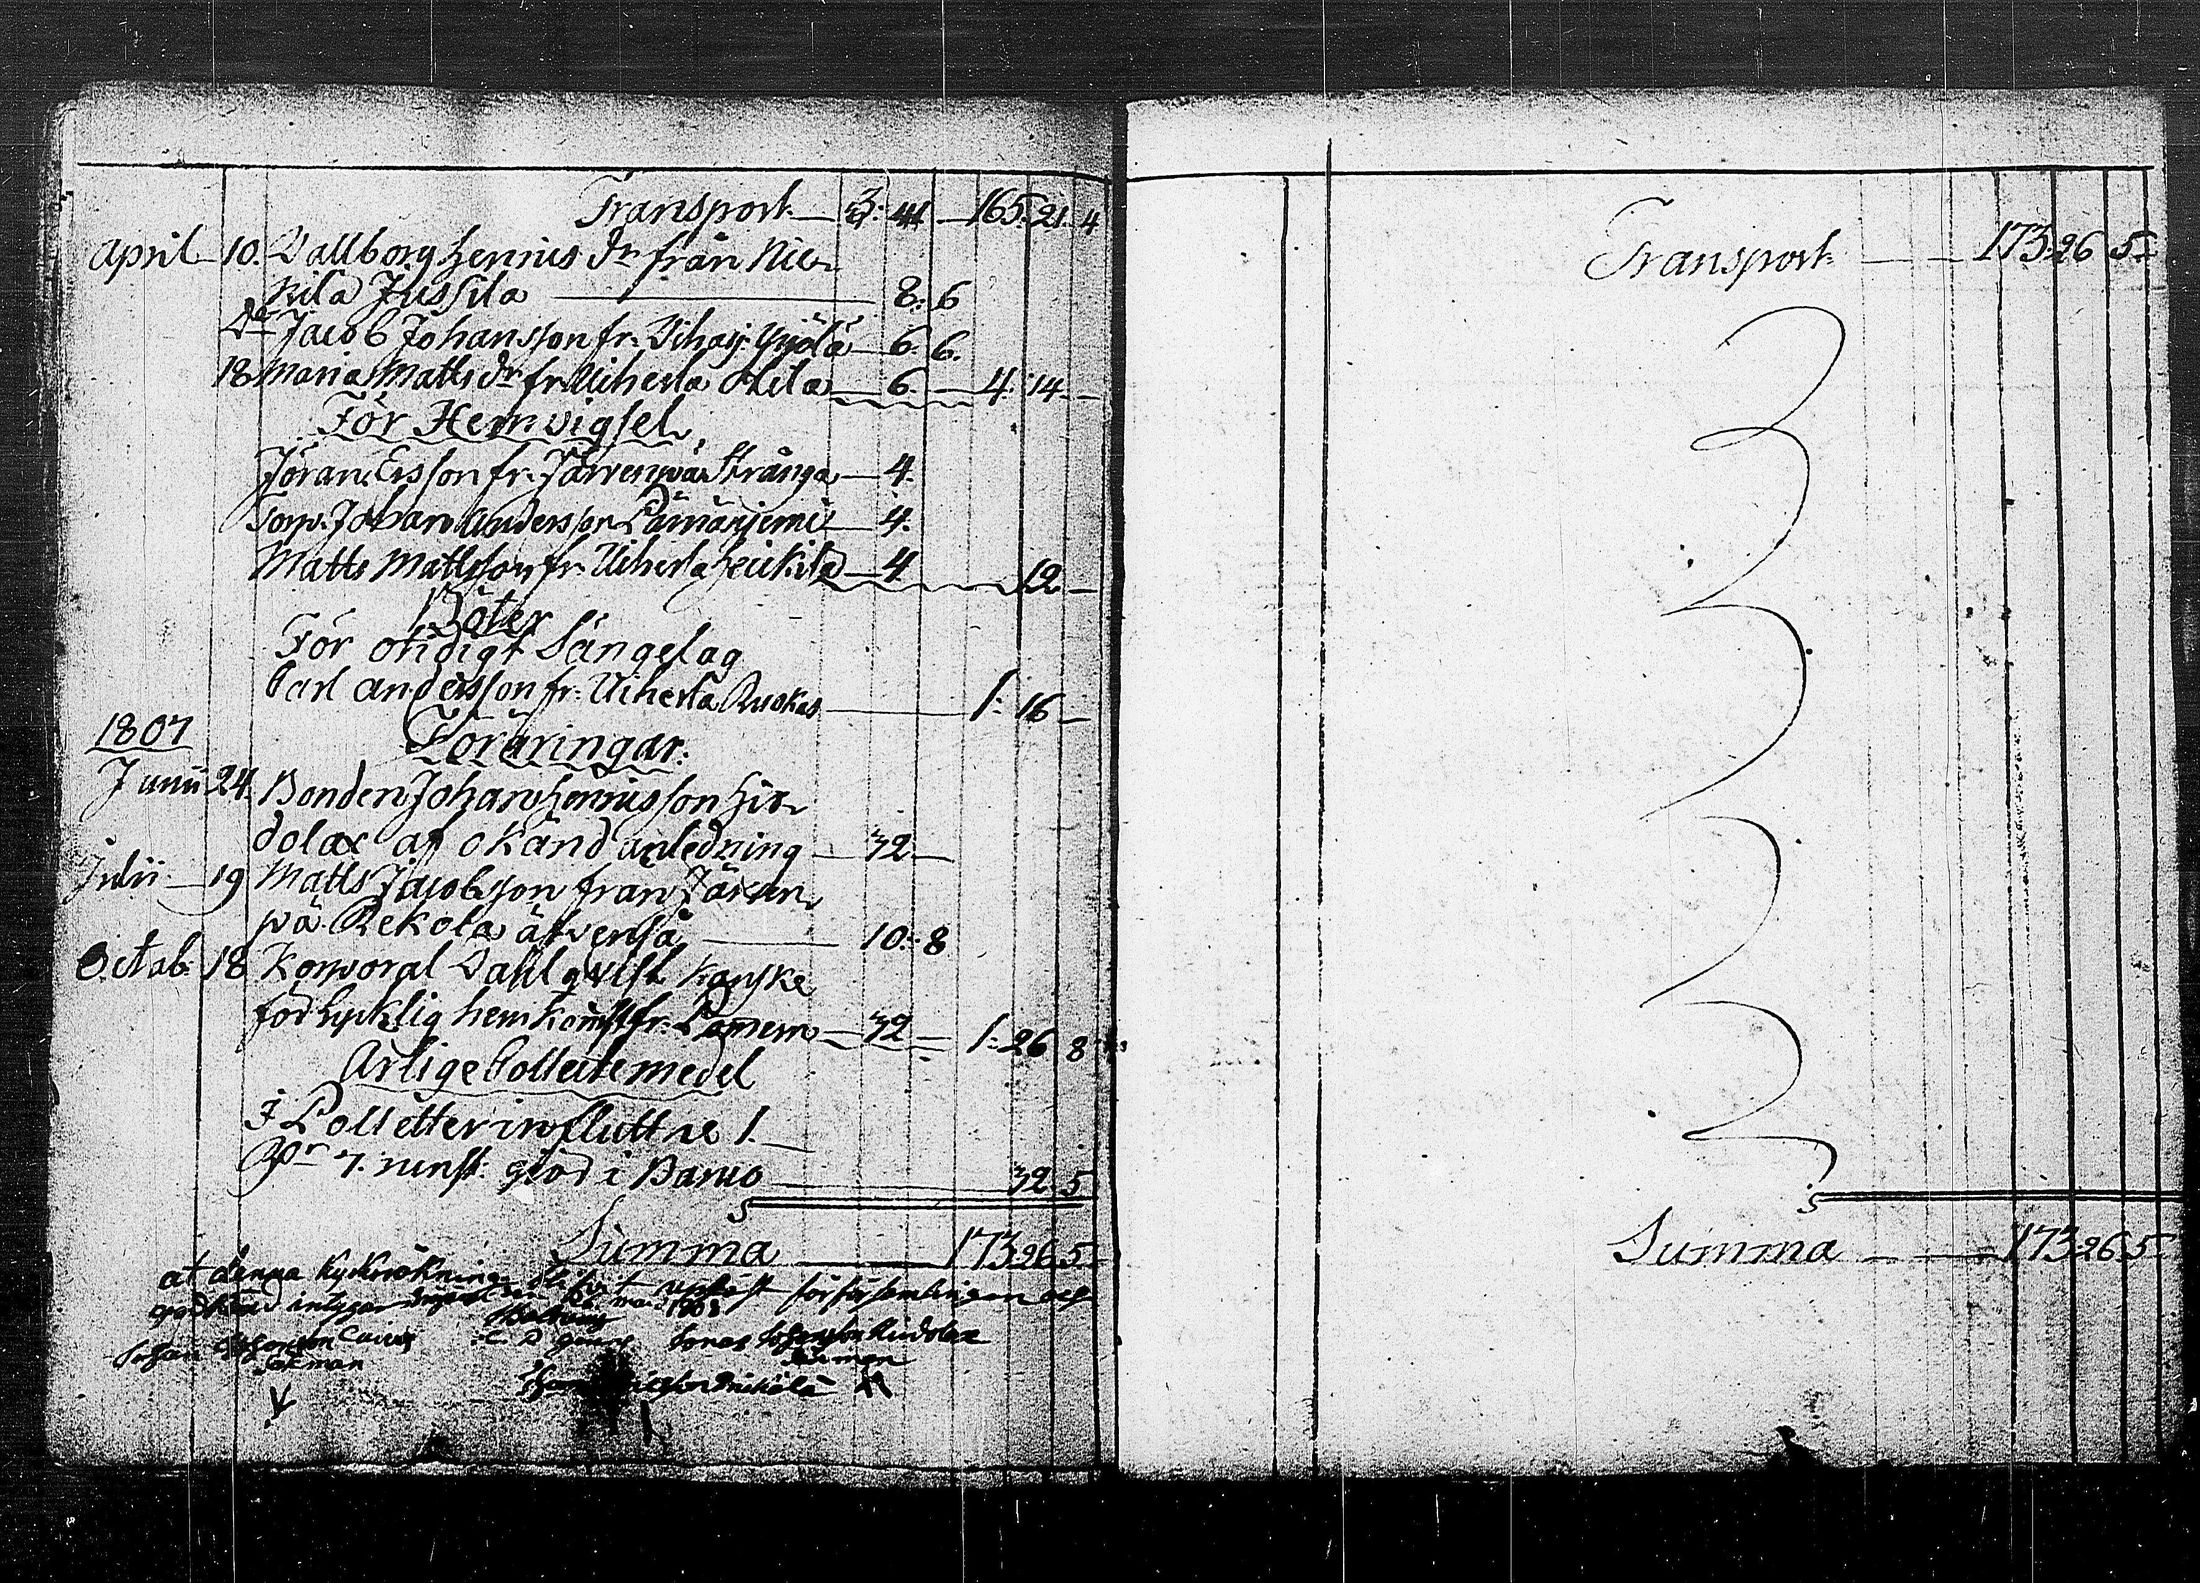 Transport — 3: 41 — 165. 21. 4
April 10. Vallborg Henrics dr från Nie-
kila Jussila — 8: 6
Do Jacob Johansson fr. Vihasj. Yrjölä — 6. 6.
18 Maria Matts dr fr. Uiherla — 6. — 4: 14 —
För Hemvigsel
Jöran Ersson fr. Järvenpää Stränga — 4.
Torp. Johan Andersson — 4.
Matts Mattsson fr. Uiherla Heikilä — 4 — 12 —
Böter
För otidigt Sängelag
Carl Andersson fr. Uiherla Ruokas — 1: 16 —
1807
Föräringar.
Junii 24. Bonden Johan Henricsson Hir-
dolax af okänd anledning — 32 —
Julii — 19 Matts Jacobsson från Järven-
pä Rekola äfvenså — 10: 8
Octob. 18 Korporal Dahlqvist kanske
för lycklig hemkomst fr. Pomern — 32 — 1: 26 8
Årlige Collectemedel
I Polletter influttne 1.
7. runst. giord i Banco — 32. 5
Summa — 173 26 5
at denna Kyrkioräkning blifvit upläst för församlingen och
godkänd intygar den maj 1808
Johan Johansson
Sexman
Jonas Johansson Hirdolax
Sexman
Transport — 173 26 5 —
Summa — 173 26 5 —